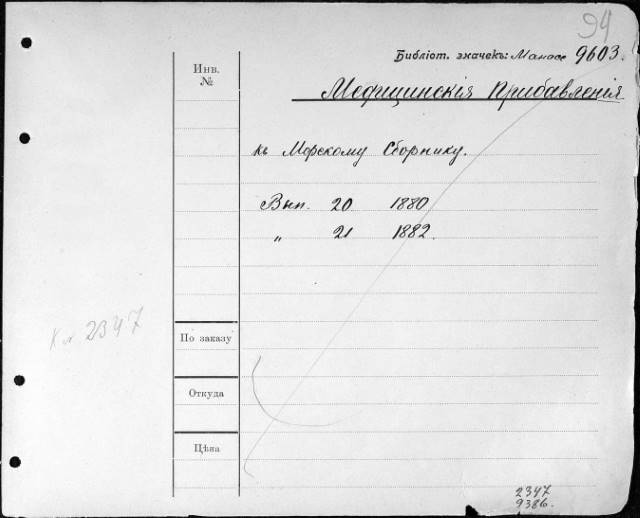 94
Библіот. значекъ: Манасе 9603.
Инв.
№
Медицинскія Прибавленія
къ Морскому Сборнику.
Вып. 20 1880
„ 21 1882.
2347
По заказу
Откуда
Цѣна
2347
9386.